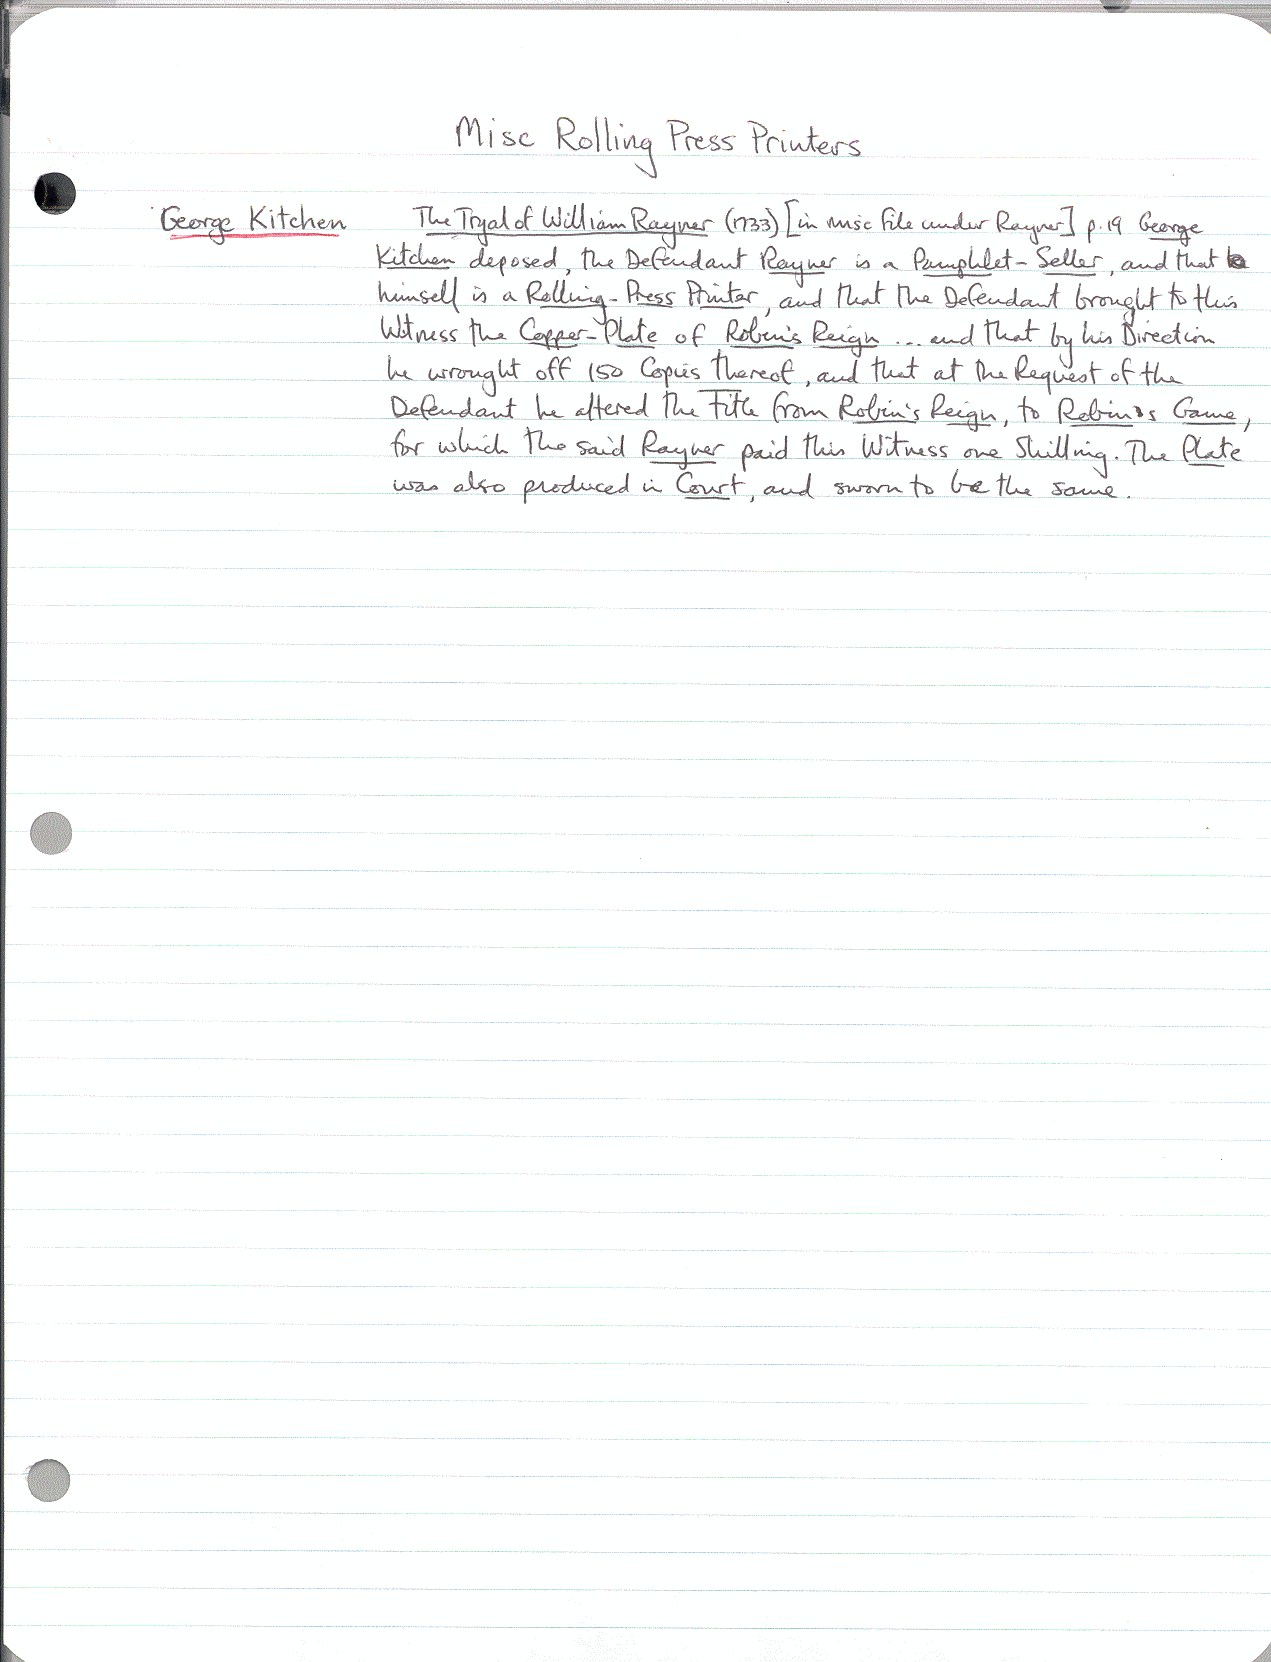 Misc Rolling Press Printers
George Kitchen The Tryal of William Rayner (1733) [in misc file under Rayner] p.19 George
Kitchen deposed, the Defendant Rayner is a Pamphlet-Seller, and that he
himself is a Rolling-Press Printer, and that the Defendant brought to this
Witness the Copper-Plate of Robin's Reign ... and that by his Direction
he wrought off 150 Copies thereof, and that at the Request of the
Defendant he altered the Title from Robin's Reign, to Robin's Game,
for which the said Rayner paid this Witness one Shilling. The Plate
was also produced in Court, and sworn to be the same.